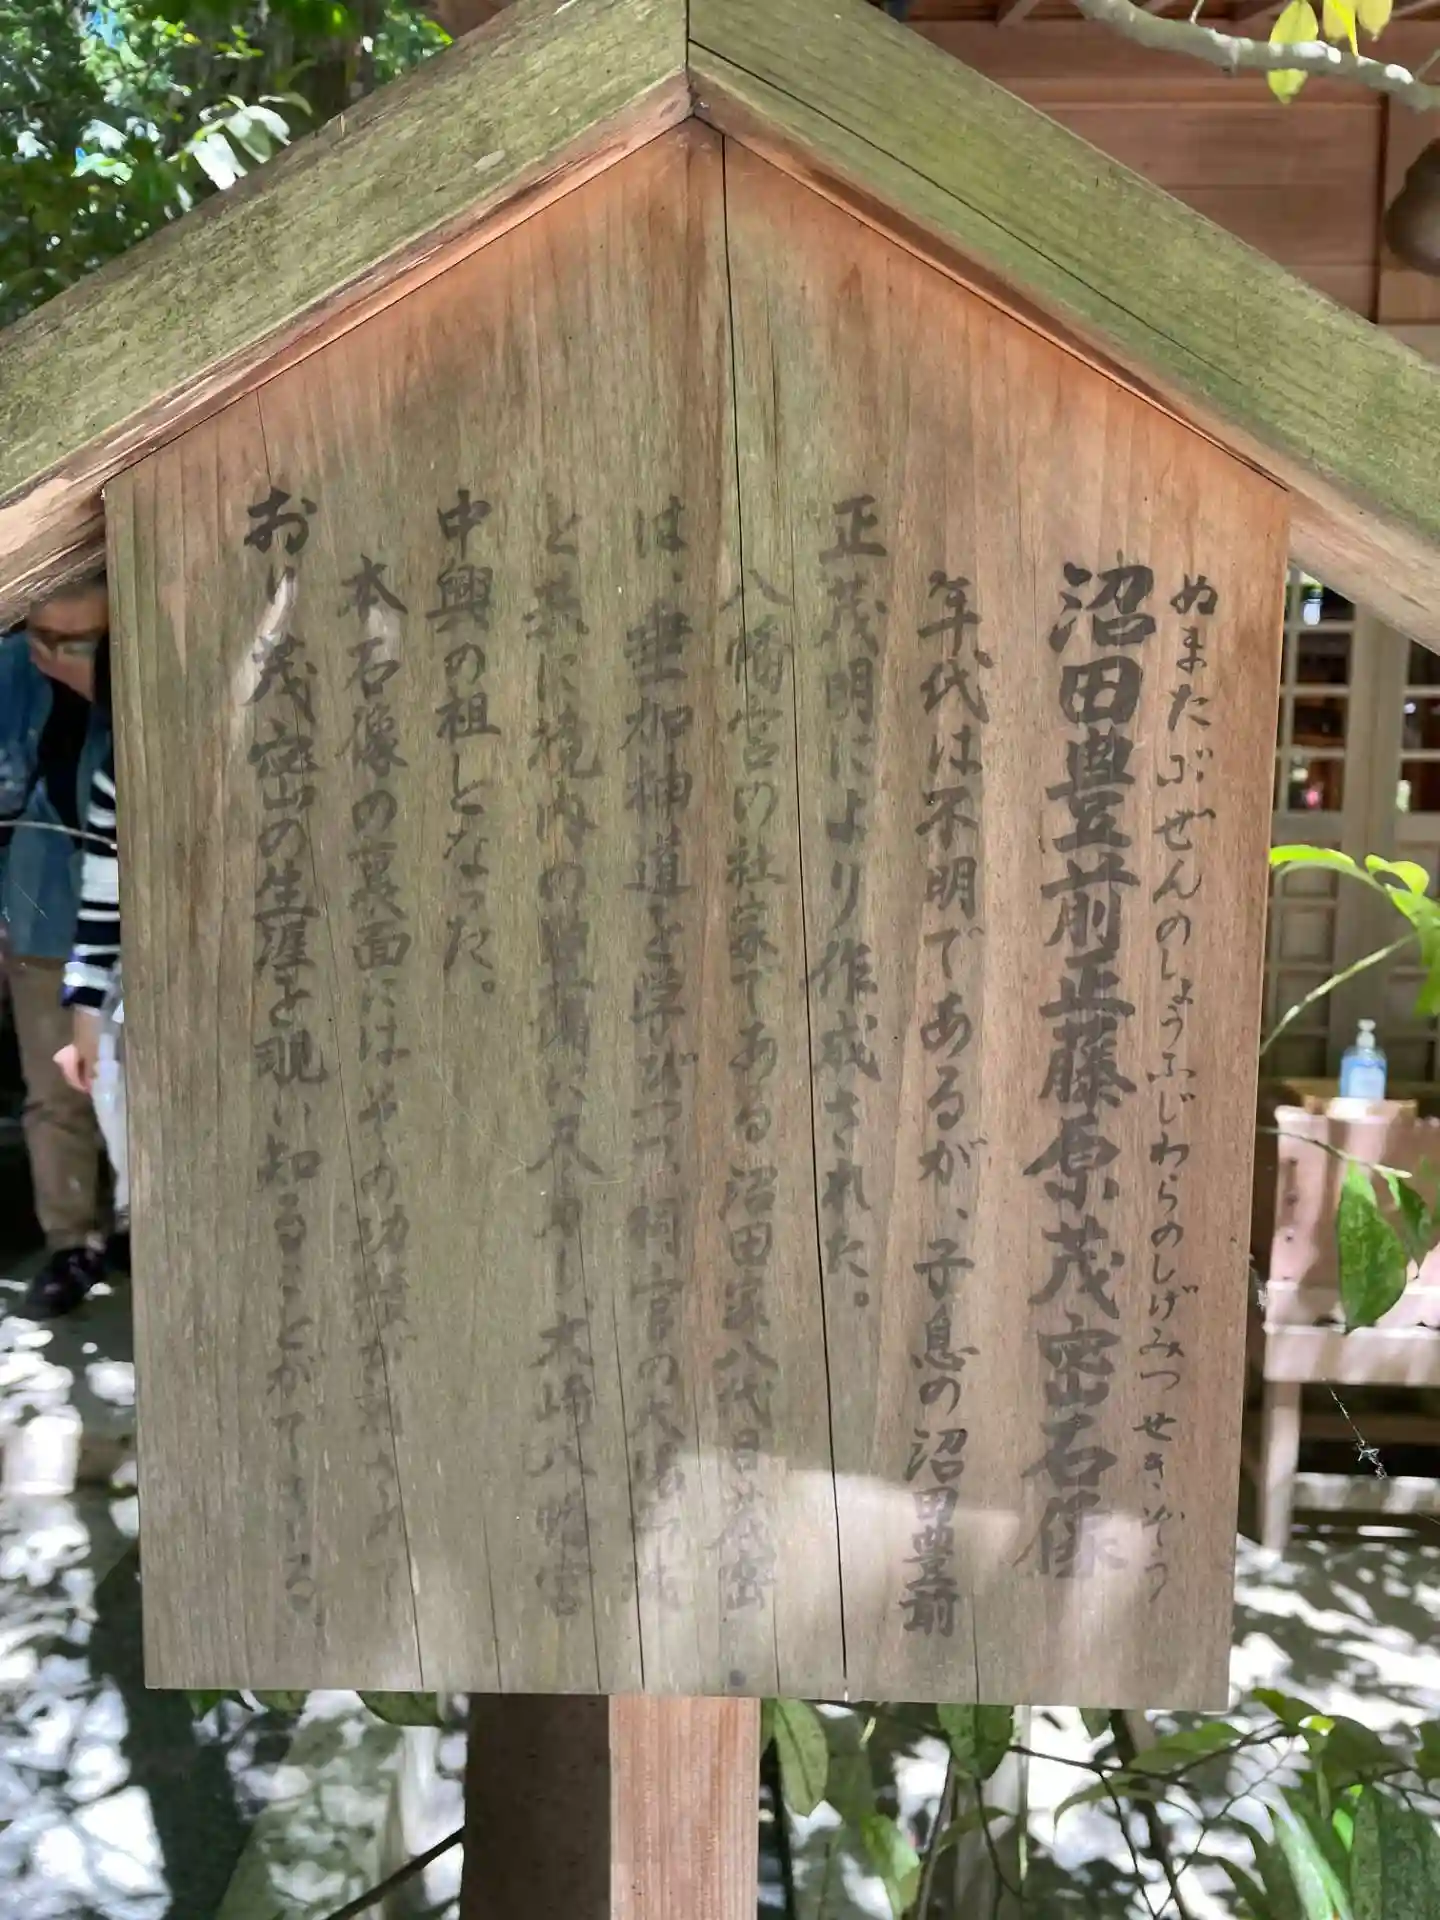 ぬまたぶぜんのしょうふじわらのしげみつせきぞう
沼田豊前正藤原茂密石像
年代は不明であるが、子息の沼田豊前
正茂明により作成された。
八幡宮の社家である沼田家八代目茂密
は、垂加神道を学びつつ、祠官の
と共に境内の整備に尽力し、大崎八幡宮
中興の祖となった。
本石像の裏面にはその功績が
おり茂密の生涯を覗い知ることができる。